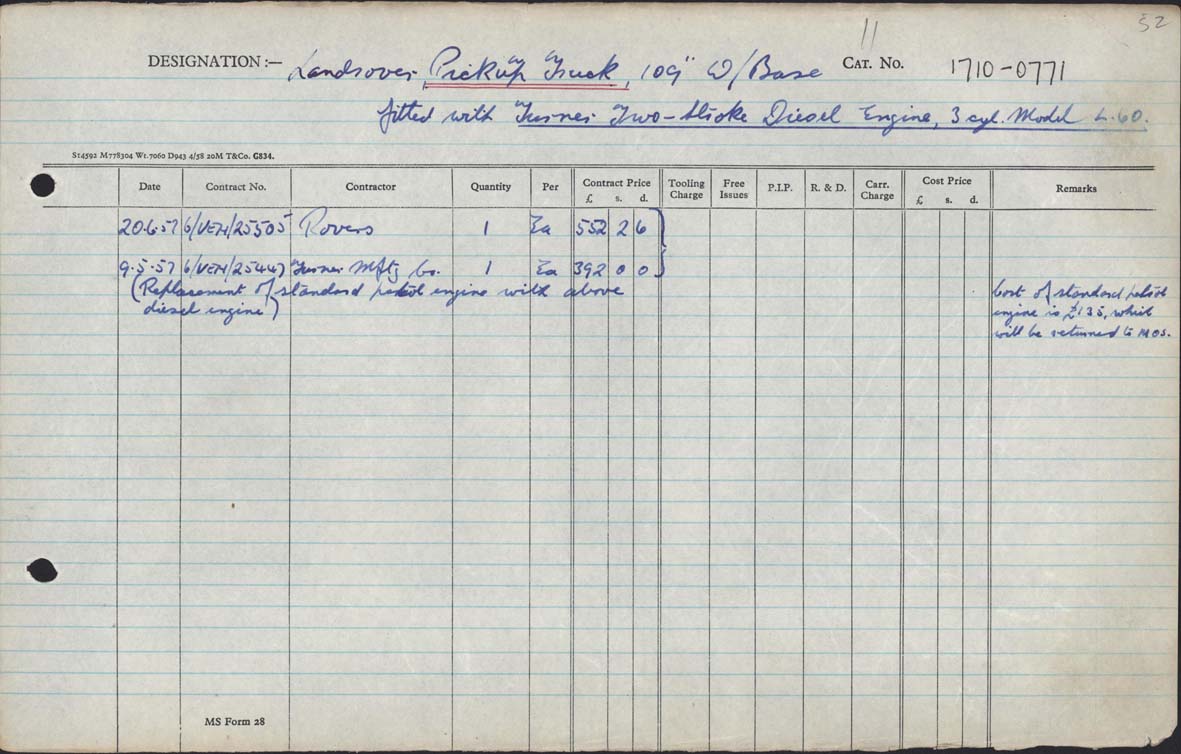 52
11
DESIGNATION :— Landrover Pickup Truck, 109" W/Base CAT. No. 1710-0771
fitted with Turner Two-Stroke Diesel Engine, 3 cyl. Model L.60.
St4592 M778304 Wt.7060 D943 4/58 20M T&Co. G834.
Date Contract No. Contractor Quantity Per Contract Price £ s. d. Tooling Charge Free Issues P.I.P. R. & D. Carr. Charge Cost Price £ s. d. Remarks
20.6.57 6/VEH/25505 Rovers 1 Ea 552 2 6
9.5.57 6/VEH/25447 Turner Mftg Co. 1 Ea 392 0 0
(Replacement of standard petrol engine with above
diesel engine)
Cost of standard petrol
engine is £135, which
will be returned to MOS.
MS Form 28